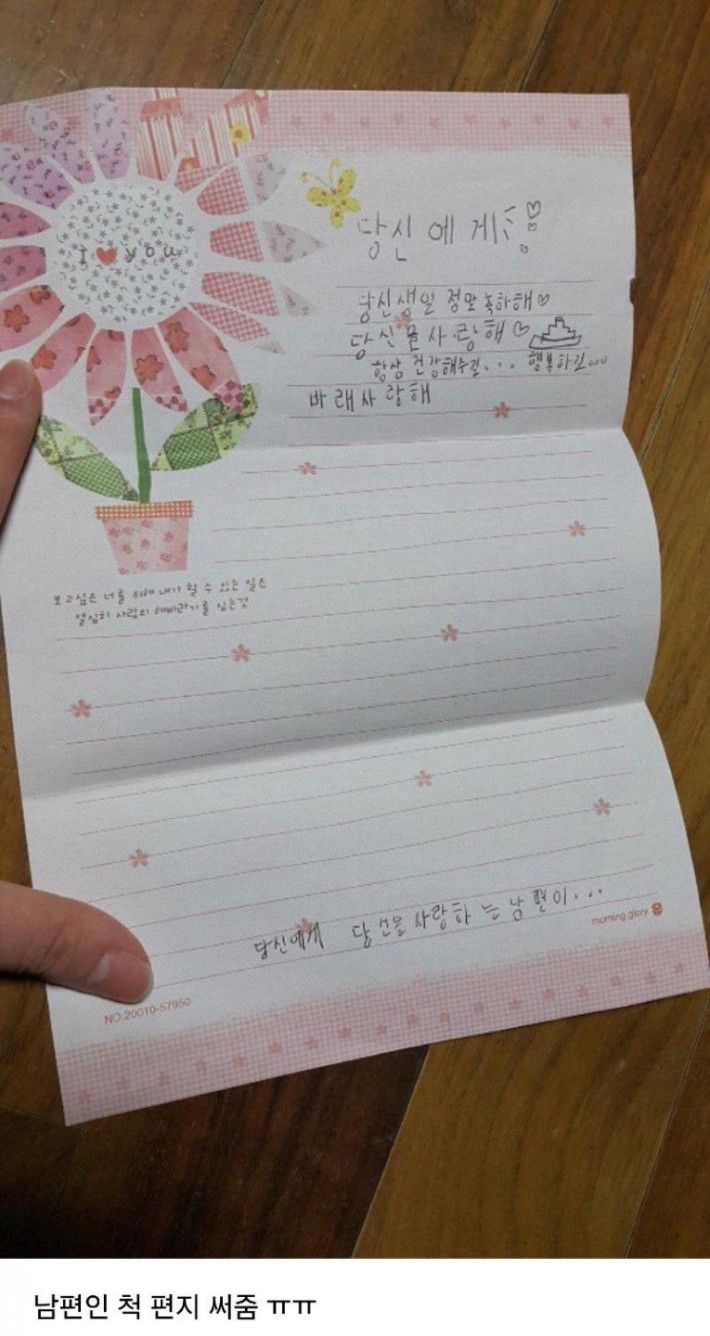 I ♥ you
당신에게
당신생일 정말 축하해♡
당신을사랑해♡
항상 건강해주길... 행복하길...
바래사랑해
보고싶은 너를 위해 내가 할 수 있는 일은
열심히 사랑의 해바라기를 심는것
당신에게 당신을 사랑하는 남편이...
morning glory
NO.20010-57950
남편인 척 편지 써줌 ㅠㅠ